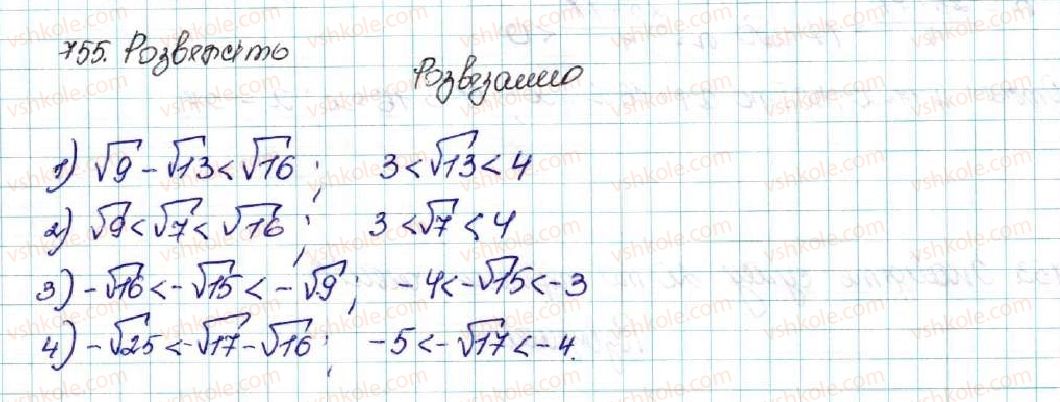 755. Розвежіть
Розвезанно
1) √9 - √13 < √16 ; 3 < √13 < 4
2) √9 < √7 < √16 ; 3 < √7 < 4
3) -√16 < -√15 < -√9 ; -4 < -√15 < -3
4) -√25 < -√17 - √16 ; -5 < -√17 < -4.